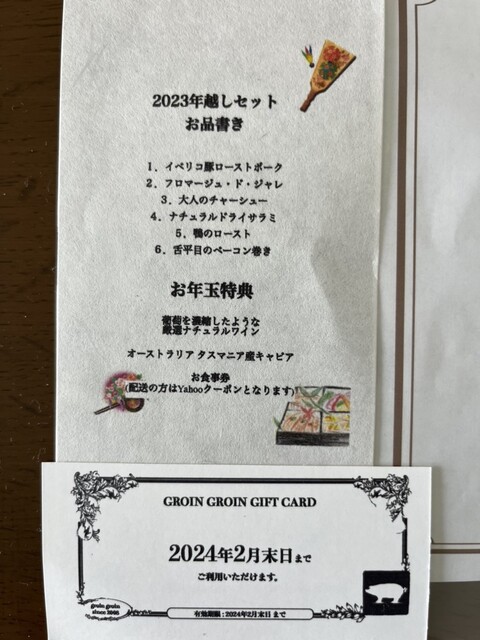 2023年越しセット
お品書き
1．イベリコ豚ローストポーク
2．フロマージュ・ド・ジャレ
3．大人のチャーシュー
4．ナチュラルドライサラミ
5．鴨のロースト
6．舌平目のベーコン巻き
お年玉特典
葡萄を濃縮したような
厳選ナチュラルワイン
オーストラリア タスマニア産キャビア
お食事券
(配送の方はYahooクーポンとなります)
GROIN GROIN GIFT CARD
2024年2月末日まで
ご利用いただけます。
groin groin
since 1998
有効期限：2024年2月末日 まで